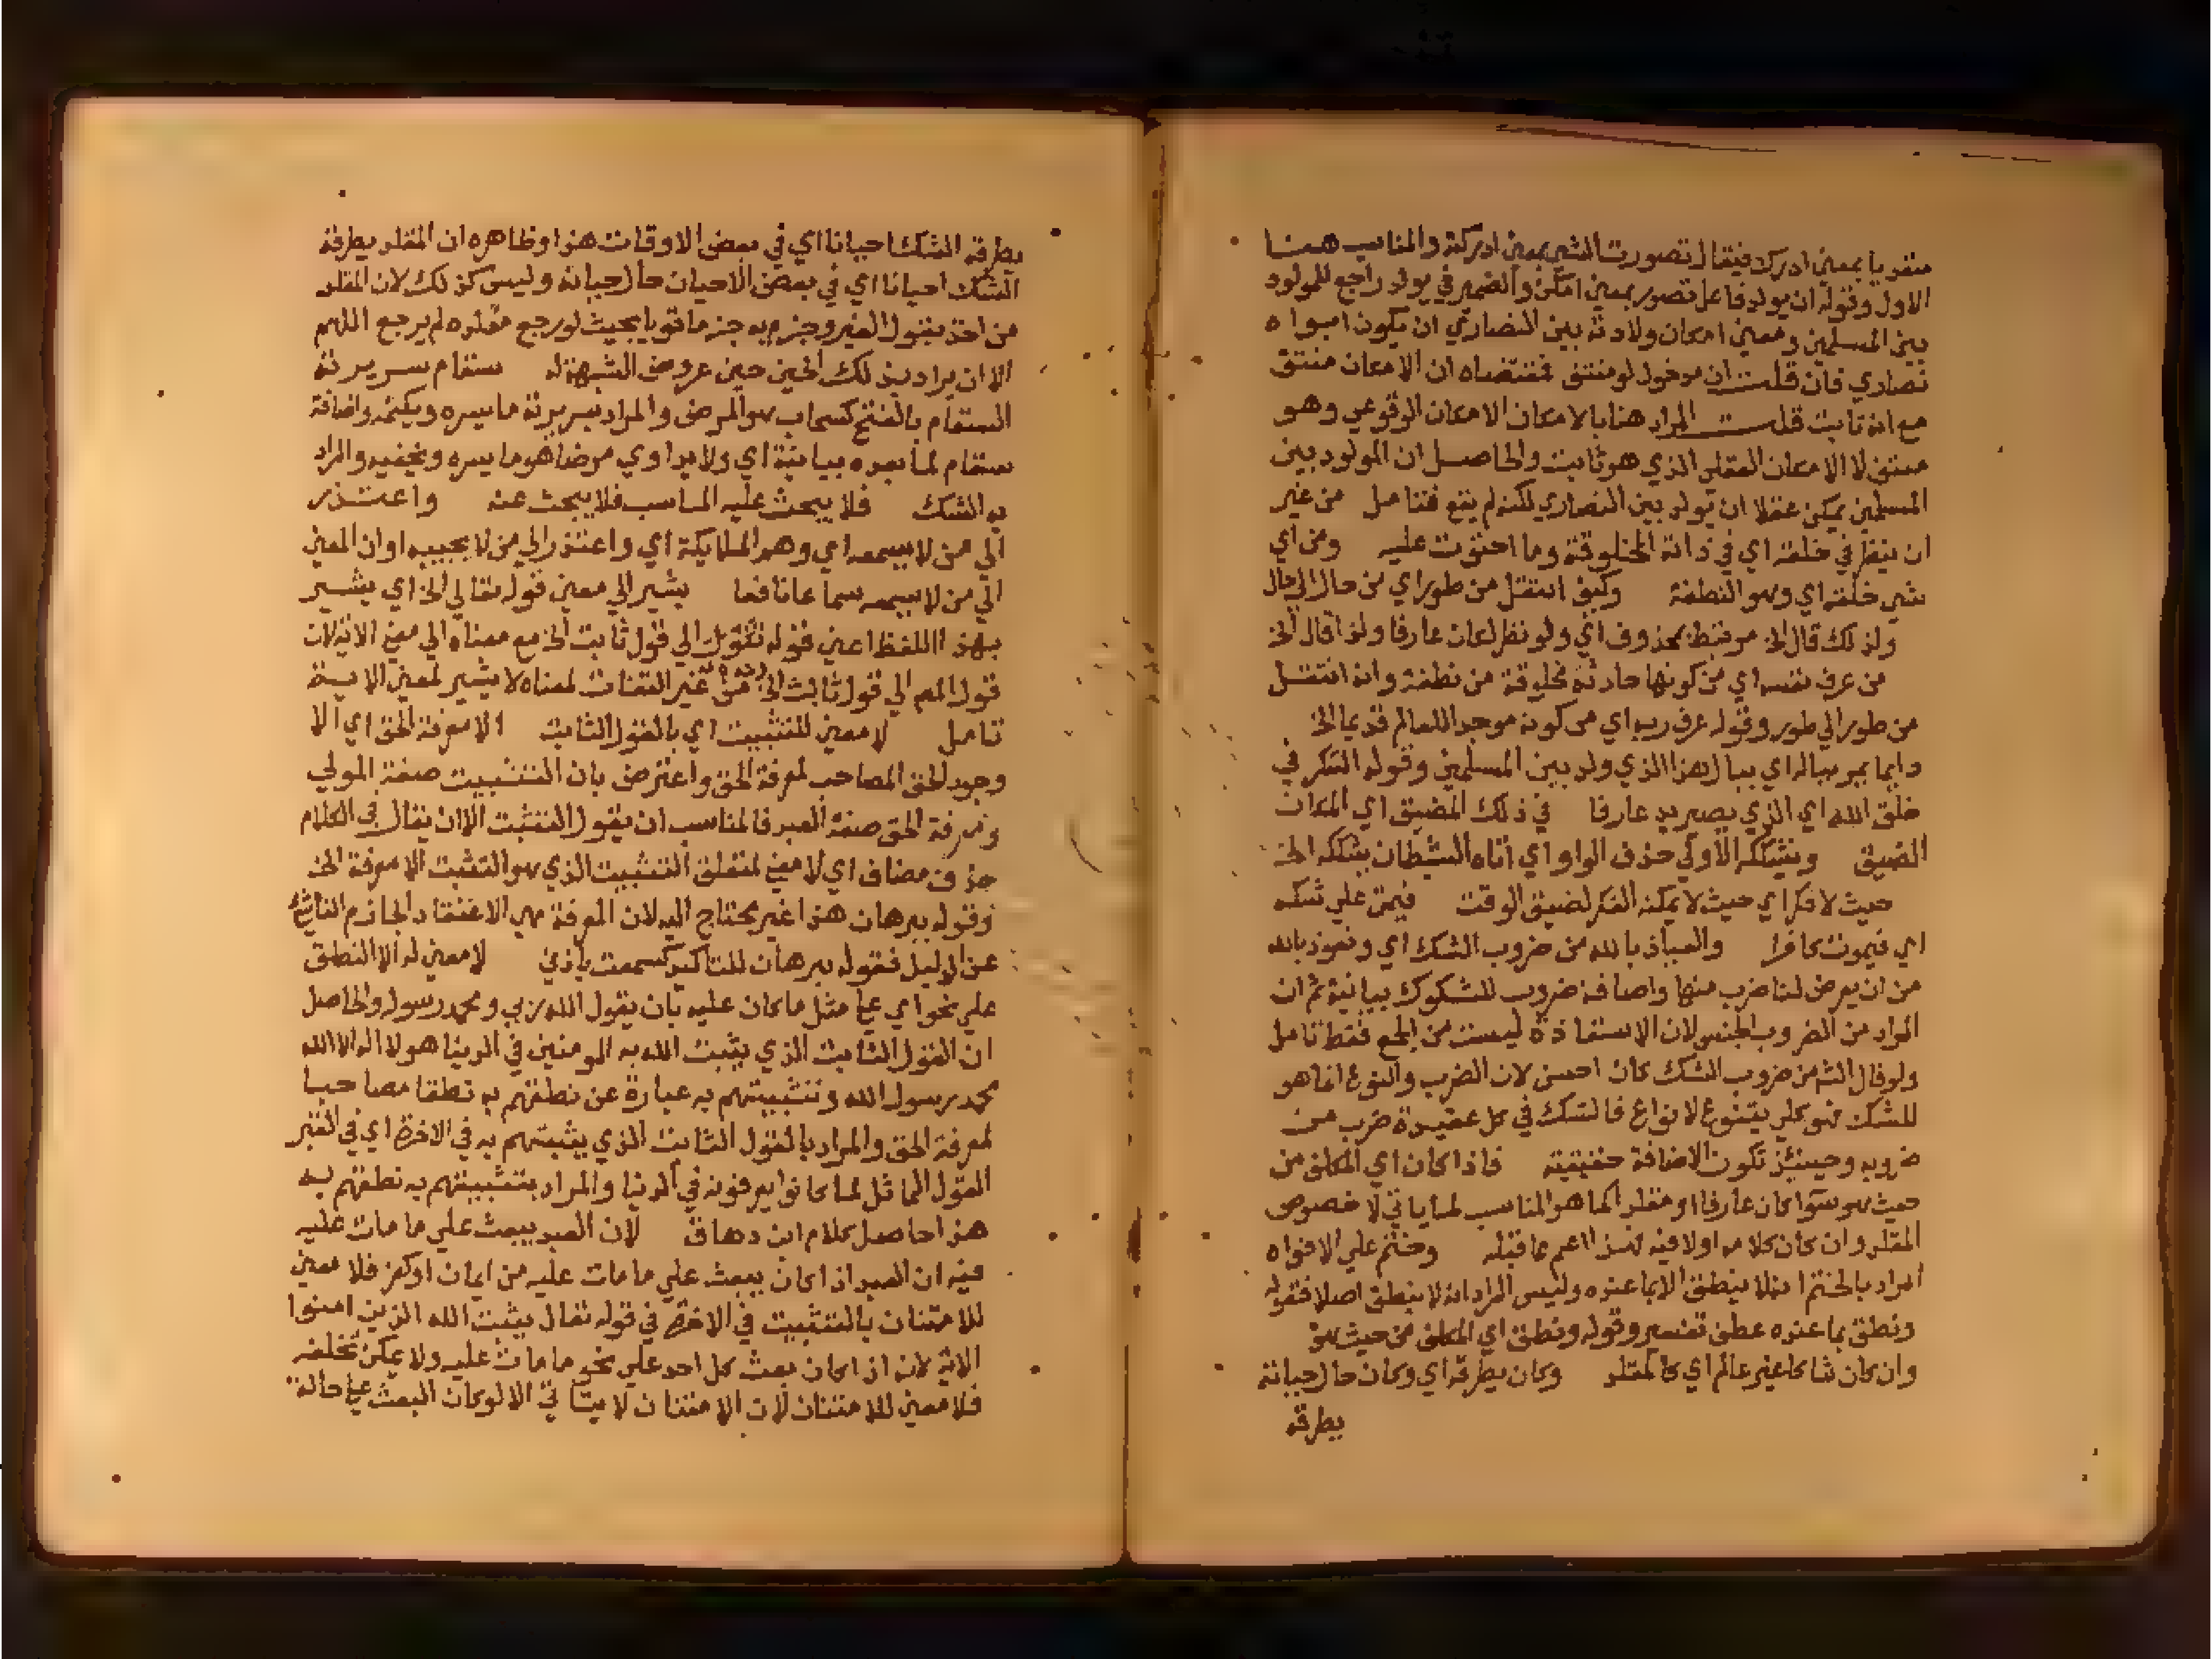 متعديا بمعني ادرك فيقال تصورت الشي بمعني ادركته والمناسب هنا
الاول وقوله ان يولد فاعل تصور بمعني امكن والضمير في يولد راجع للمولود
بين المسلمين ومعني امكان ولادته بين النصاري ان يكون ابواه
نصاري فان قلت ان مدخول لو منتف فمقتضاه ان الامكان منتف
مع انه ثابت قلت المراد هنا بالامكان الامكان الوقوعي وهو
منتف لا الامكان العقلي الذي هو ثابت والحاصل ان المولود بين
المسلمين يمكن عقلا ان يولد بين النصاري لكنه لم يقع فتامل من غير
ان ينظر في خلقه اي في ذاته المخلوقة وما احتوت عليه ومن اي
شي خلقه اي وهو النطفة وكيف انتقل من طور اي من حال الي حال
ولذلك قال الخ مرتبط بمحذوف اي ولو نظر لكان عارفا ولذا قال الخ
من عرف نفسه اي من كونها حادثة مخلوقة من نطفة وانه انتقل
من طور الي طور وقوله عرف ربه اي من كونه موجد اللعالم قديما الخ
دايما يمر بباله اي ببال هذا الذي ولد بين المسلمين وقوله التفكر في
خلق الله اي الذي يصير به عارفا في ذلك المضيق اي المكان
الضيق ويشككه الاولي حذف الواو اي اتاه الشيطان يشككه الخ
حيث لا فكر اي حيث لا يمكنه الفكر لضيق الوقت فيمت علي شكه
اي فيموت كافرا والعياذ بالله من ضروب الشك اي ونعوذ بالله
من ان يعرض لنا ضرب منها واضافة ضروب للشكوك بيانية ثم ان
المراد من الضروب الجنس لان الاستعاذة ليست من الجمع فقط تامل
ولو قال الشم من ضروب الشك كان احسن لان الضرب والنوع انما هو
للشك فهو كلي يتنوع لانواع فالشك في كل عقيدة ضرب من
ضروبه وحينئذ تكون الاضافة حقيقية فاذا كان اي المكلف من
حيث هو سوا كان عارفا او مقلد اكما هو المناسب لما ياتي لا خصوص
المقلد وان كان كلامه اولا فيه فهذا اعم مما قبله وختم علي الافواه
المراد بالختم انه لا ينطق الا بما عنده وليس المراد انه لا ينطق اصلا فقوله
ونطق بما عنده عطف تفسير وقوله ونطق اي المكلف من حيث هو
وان كان شاكا غير عالم اي كالمقلد وكان يطرقه اي وكان حال حياته
يطرقه
يطرقه الشك احيانا اي في بعض الاوقات هذا وظاهره ان المقلد يطرقه
الشك احيانا اي في بعض الاحيان حال حياته وليس كذلك لان المقلد
من اخذ بقول الغير وجزم به جزما قويا بحيث لو رجع مقلده لم يرجع اللهم
الا ان يراد بذلك الحين حين عروض الشبهة له سقام سريرته
السقام بالفتح كسحاب هو المرض والمراد بسريرته ما يسره ويكتمه واضافة
سقام لما بعده بيانية اي ولا يداوي مرضا هو ما يسره ويخفيه والمراد
به الشك فلا يبحث عليه المناسب فلا يبحث عنه واعتذر
الي من لا يسمعه اي وهو الملايكة اي واعتذر الي من لا يجيبه او ان المعني
الي من لا يسمعه سماعا نافعا يشير الي معني قوله تعالي الخ اي يشير
بهذا اللفظ اعني قوله تقول الي قول ثابت الخ مع معناه الي معني الاية لان
قول المص الي قول ثابت الخ من غير التفات لمعناه لا يشير لمعني الاية
تامل لا معني للتثبيت اي بالقول الثابت الا معرفة الحق اي الا
وجود الحق المصاحب لمعرفة الحق واعترض بان التثبيت صفة المولي
ومعرفة الحق صفة العبد فالمناسب ان يقول التثبت الا ان يقال في الكلام
حذف مضاف اي لا معني لمتعلق التثبيت الذي هو التثبت الا معرفة الحق
وقوله ببرهان هذا غير محتاج اليه لان المعرفة هي الاعتقاد الجازم الناشئ
عن الدليل فقوله ببرهان للتاكيد كسمعت باذني لا معني له الا النطق
علي نحو اي علي مثل ما كان عليه بان يقول الله ربي ومحمد رسوله والحاصل
ان القول الثابت الذي يثبت الله به المومنين في الدنيا هو لا اله الا الله
محمد رسول الله وتثبيتهم به عبارة عن نطقهم به نطقا مصاحبا
لمعرفة الحق والمراد بالقول الثابت الذي يثبتهم به في الاخرة اي في القبر
القول المماثل لما كانوا يعرفونه في الدنيا والمراد بتثبيتهم به نطقهم به
هذا حاصل كلام ابن دهاق لان العبد يبعث علي ما مات عليه
فيه ان العبد اذا كان يبعث علي ما مات عليه من ايمان او كفر فلا معني
للامتنان بالتثبيت في الاخرة في قوله تعال يثبت الله الذين امنوا
الاية لانه اذا كان بعث كل احد علي نحو ما مات عليه ولا يمكن تخلفه
فلا معني للامتنان لان الامتنان لا يتاتي الا لو كان البعث علي حالة